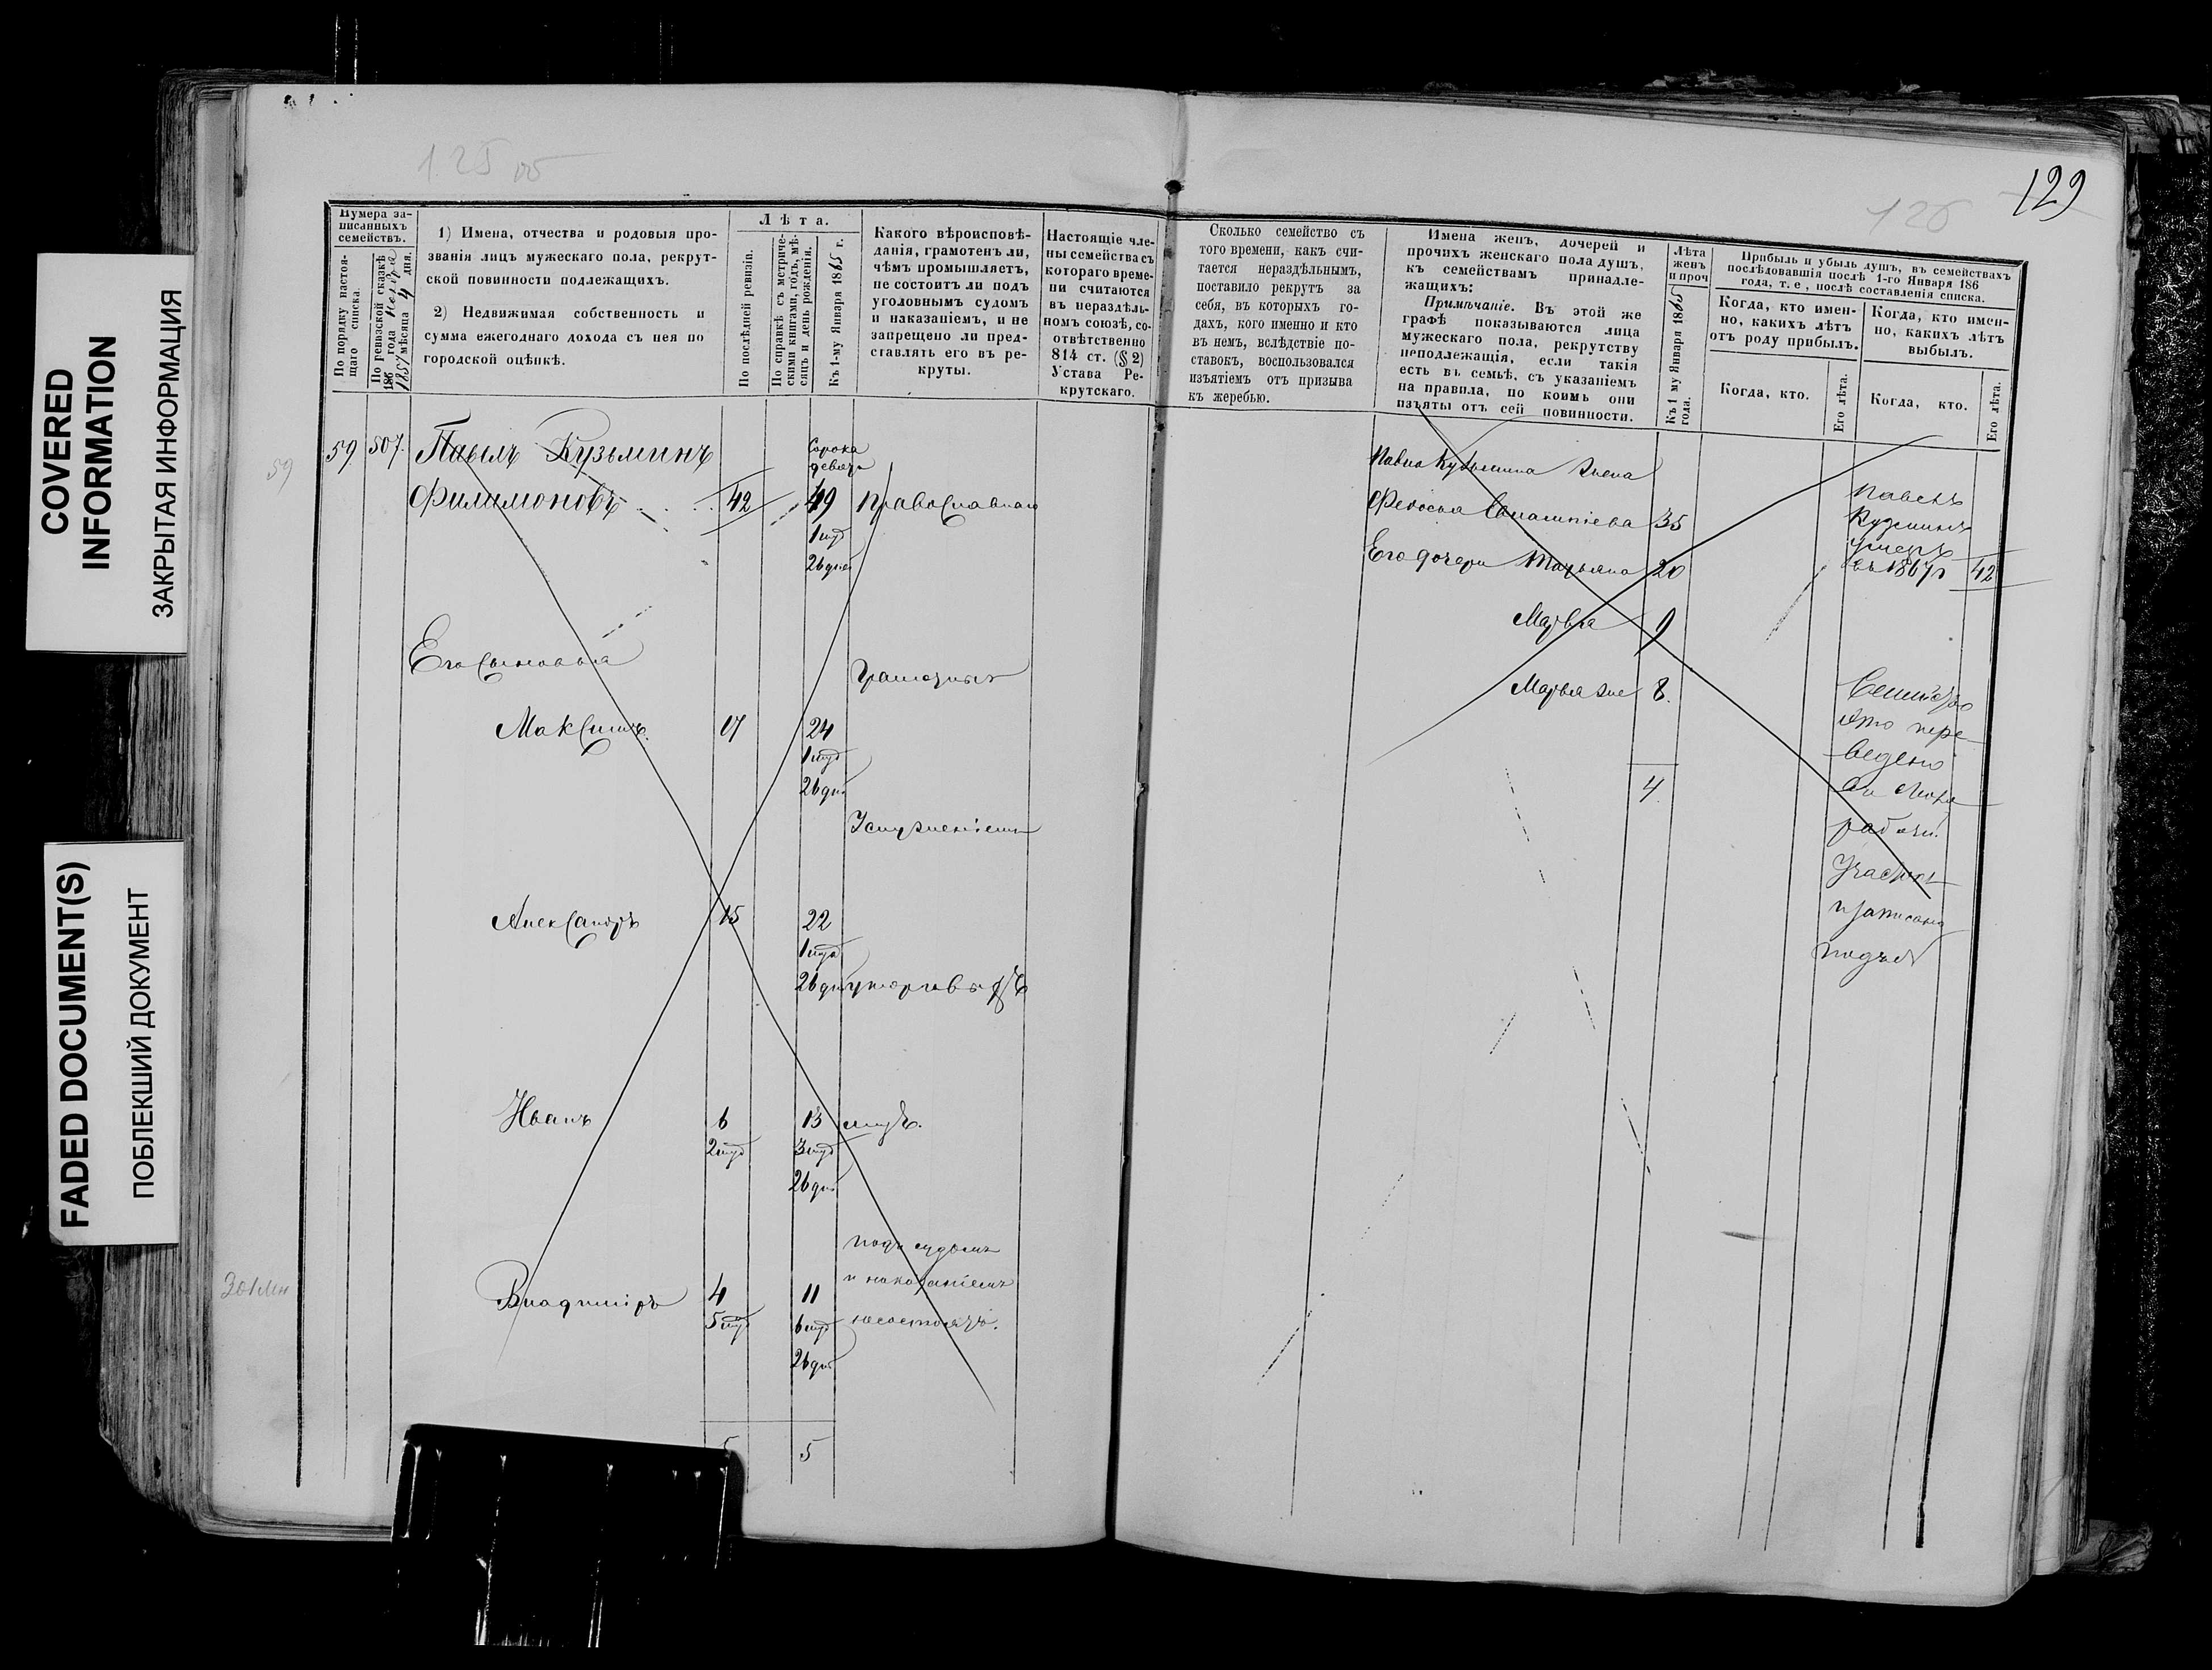 COVERED
INFORMATION
ЗАКРЫТАЯ ИНФОРМАЦИЯ
FADED DOCUMENT(S)
ПОБЛЕКШИЙ ДОКУМЕНТ
125 об
Нумера за-
писанныхъ
семействъ.
По порядку настоя-
щаго списка.
По ревизской сказкѣ
186 года
1857 мѣсяца 4 дня.
1) Имена, отчества и родовыя про-
званія лицъ мужескаго пола, рекрут-
ской повинности подлежащихъ.
2) Недвижимая собственность и
сумма ежегоднаго дохода съ нея по
городской оцѣнкѣ.
Лѣта.
По послѣдней ревизіи.
По справкѣ съ метриче-
скими книгами, годъ, мѣ-
сяцъ и день рожденія.
Къ 1-му Января 1865 г.
Какого вѣроисповѣ-
данія, грамотенъ ли,
чѣмъ промышляетъ,
не состоитъ ли подъ
уголовнымъ судомъ
и наказаніемъ, и не
запрещено ли пред-
ставлять его въ ре-
круты.
Настоящіе чле-
ны семейства съ
котораго време-
ни считаются
въ нераздѣль-
номъ союзѣ, со-
отвѣтственно
814 ст. (§ 2)
Устава Ре-
крутскаго.
59
59.
507.
Павелъ Кузьминъ
Филимоновъ
42
Сорока
девять
49
Православнаго
26 дней
Его сыновья
Грамотныхъ
Максимъ.
17
24
26 дн
Услуженіемъ
Александръ
15
22
26 дн
Иванъ
6
13
26 дн
подъ судомъ
и наказаніемъ
несостоятъ.
Владиміръ
4
11
26 дн
5
5
129
126
Сколько семейство съ
того времени, какъ счи-
тается нераздѣльнымъ,
поставило рекрутъ за
себя, въ которыхъ го-
дахъ, кого именно и кто
въ немъ, вслѣдствіе по-
ставокъ, воспользовался
изъятіемъ отъ призыва
къ жеребью.
Имена женъ, дочерей и
прочихъ женскаго пола душъ,
къ семействамъ принадле-
жащихъ:
Примѣчаніе. Въ этой же
графѣ показываются лица
мужескаго пола, рекрутству
неподлежащія, если такія
есть въ семьѣ, съ указаніемъ
на правила, по коимъ они
изъяты отъ сей повинности.
Лѣта
женъ
и проч
Къ 1 му Января 1865
года.
Прибыль и убыль душъ, въ семействахъ
послѣдовавшія послѣ 1-го Января 186
года, т. е., послѣ составленія списка.
Когда, кто имен-
но, какихъ лѣтъ
отъ роду прибылъ.
Когда, кто.
Его лѣта.
Когда, кто имен-
но, какихъ лѣтъ
выбылъ.
Когда, кто.
Его лѣта.
Павла Кузьмина жена
Федосья 35
Его дочери Татьяна 20
Марѳа 9
Марѳа же 8.
4.
Павелъ
Кузминъ
умеръ
въ 1867 г 42
Семейство
это пере-
ведено
рабочи.
Участокъ
и записано
подъ №